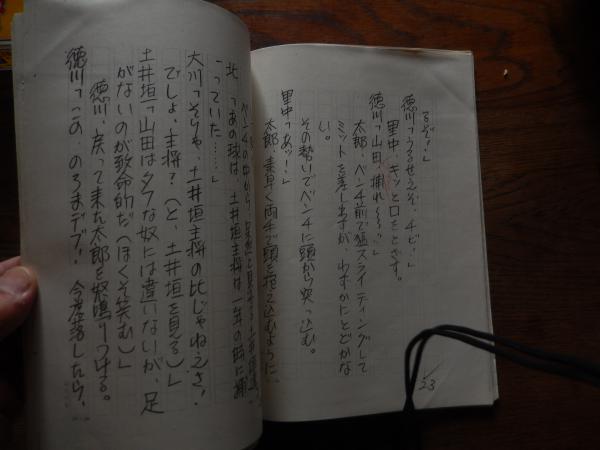 るぞ！」
徳川「うるせえぞ、チビ！」
里中、キッと口をとざす。
徳川「山田、捕れ〜〜！」
太郎、ベンチ前で猛スライディングして
ミットを差し出すが、わずかにとどかな
い。
その勢いでベンチに頭から突っ込む。
里中「あッ！」
太郎、素早く両手で頭を抱え込むように、
23
ベンチの中から、
っていた……」
北「あの球は、土井垣主将は一年の時に捕
大川「そりゃ、土井垣主将の比じゃねえさ！
でしょ、主将？（と、土井垣を見る）」
土井垣「山田はタフな奴には違いないが、足
がないのが致命的だ（ほくそ笑む）」
徳川、戻って来た太郎を怒鳴りつける。
徳川「この、のろまデブ！今度落したら、